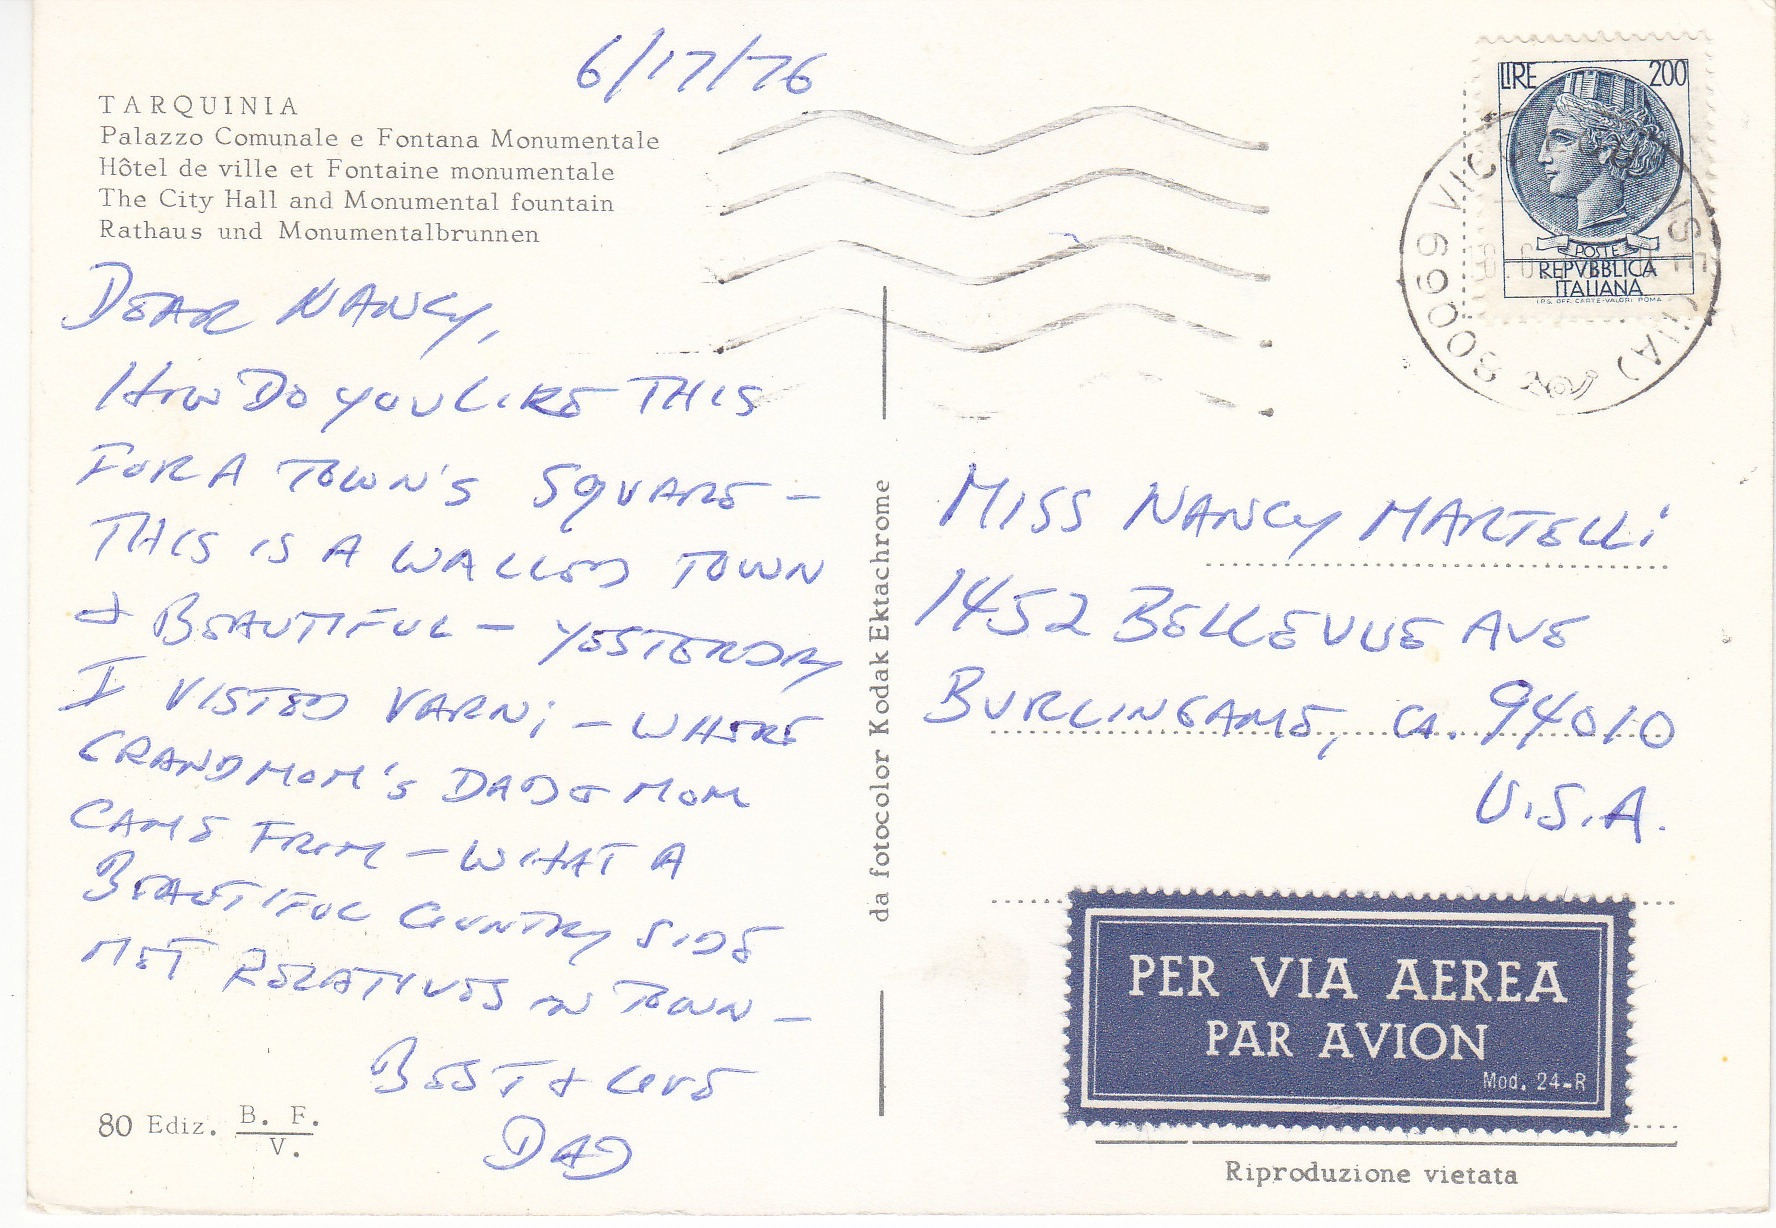 6/17/76
TARQUINIA
Palazzo Comunale e Fontana Monumentale
Hôtel de ville et Fontaine monumentale
The City Hall and Monumental fountain
Rathaus und Monumentalbrunnen
DEAR NANCY,
HOW DO YOU LIKE THIS
FOR A TOWN'S SQUARE –
THIS IS A WALLED TOWN
& BEAUTIFUL – YESTERDAY
I VISTED VARNi – WHERE
GRANDMOM'S DAD & MOM
CAME FROM – WHAT A
BEAUTIFUL COUNTRY SIDE
MET RELATIVES IN TOWN –
BEST & LOVE
DAD
80 Ediz. B. F.
V.
da fotocolor Kodak Ektachrome
LIRE 200
POSTE
REPVBBLICA
ITALIANA
I.P.S. OFF. CARTE-VALORI ROMA
80069 VIC
MISS NANCY MARTELLi
1452 BELLEVUE AVE
BURLINGAME, CA. 94010
U.S.A.
PER VIA AEREA
PAR AVION
Mod. 24-R
Riproduzione vietata